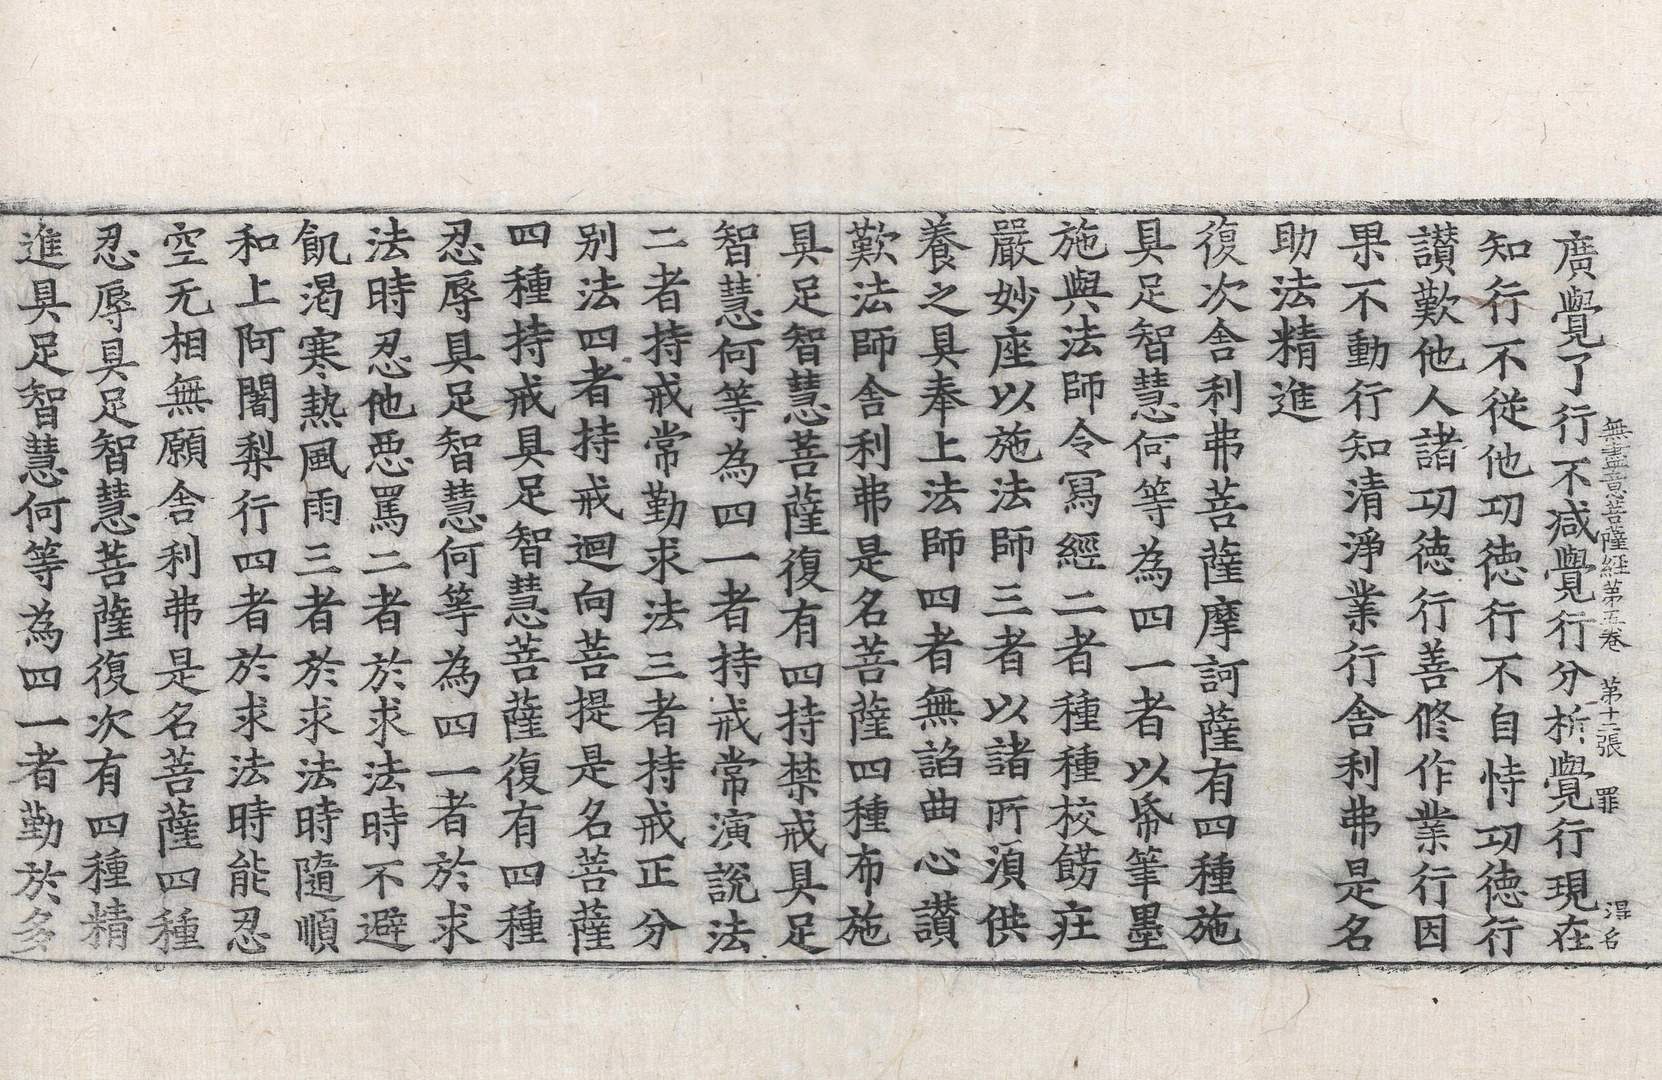 無盡意菩薩經第五卷 第十二張 罪 淂名
廣覺了行不減覺行分析覺行現在
知行不從他功德行不自恃功德行
讃歎他人諸功德行善修作業行因
果不動行知清淨業行舎利弗是名
助法精進
復次舎利弗菩薩摩訶薩有四種施
具足智慧何等為四一者以帋筆墨
施與法師令冩經二者種種校餝疘
嚴妙座以施法師三者以諸所湏供
養之具奉上法師四者無諂曲心讃
歎法師舎利弗是名菩薩四種布施
具足智慧菩薩復有四持禁戒具足
智慧何等為四一者持戒常演説法
二者持戒常勤求法三者持戒正分
别法四者持戒迴向菩提是名菩薩
四種持戒具足智慧菩薩復有四種
忍辱具足智慧何等為四一者於求
法時忍他惡罵二者於求法時不避
飢渇寒熱風雨三者於求法時隨順
和上阿闍梨行四者於求法時能忍
空无相無願舎利弗是名菩薩四種
忍辱具足智慧菩薩復次有四種精
進具足智慧何等為四一者勤於多